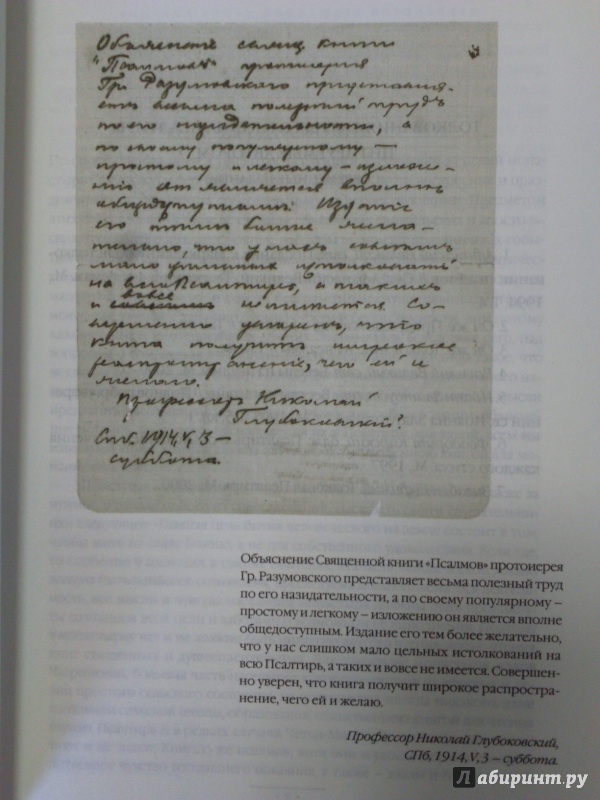 Объяснение свящ. книги
"Псалмовъ" протоиерея
Гр. Разумовского представля-
етъ весьма полезный трудъ
по его назидательности, а
по своему популярному —
простому и легкому — изложе-
нию онъ является вполнѣ
общедоступнымъ. Издание
его тѣмъ более жела-
тельно, что у насъ слишкомъ
мало цѣльныхъ истолкований
на всю Псалтирь, а такихъ
вовсе
и не имѣется. Со-
вершенно увѣренъ, что
книга получитъ широкое
распространение, чего ей и
желаю.
Профессоръ Николай
Глубоковский.
Спб. 1914, V, 3 —
суббота.
Объяснение Священной книги «Псалмов» протоиерея
Гр. Разумовского представляет весьма полезный труд
по его назидательности, а по своему популярному –
простому и легкому – изложению он является вполне
общедоступным. Издание его тем более желательно,
что у нас слишком мало цельных истолкований на
всю Псалтирь, а таких и вовсе не имеется. Совершен-
но уверен, что книга получит широкое распростра-
нение, чего ей и желаю.
Профессор Николай Глубоковский,
СПб, 1914, V, 3 – суббота.
Лабиринт.ру